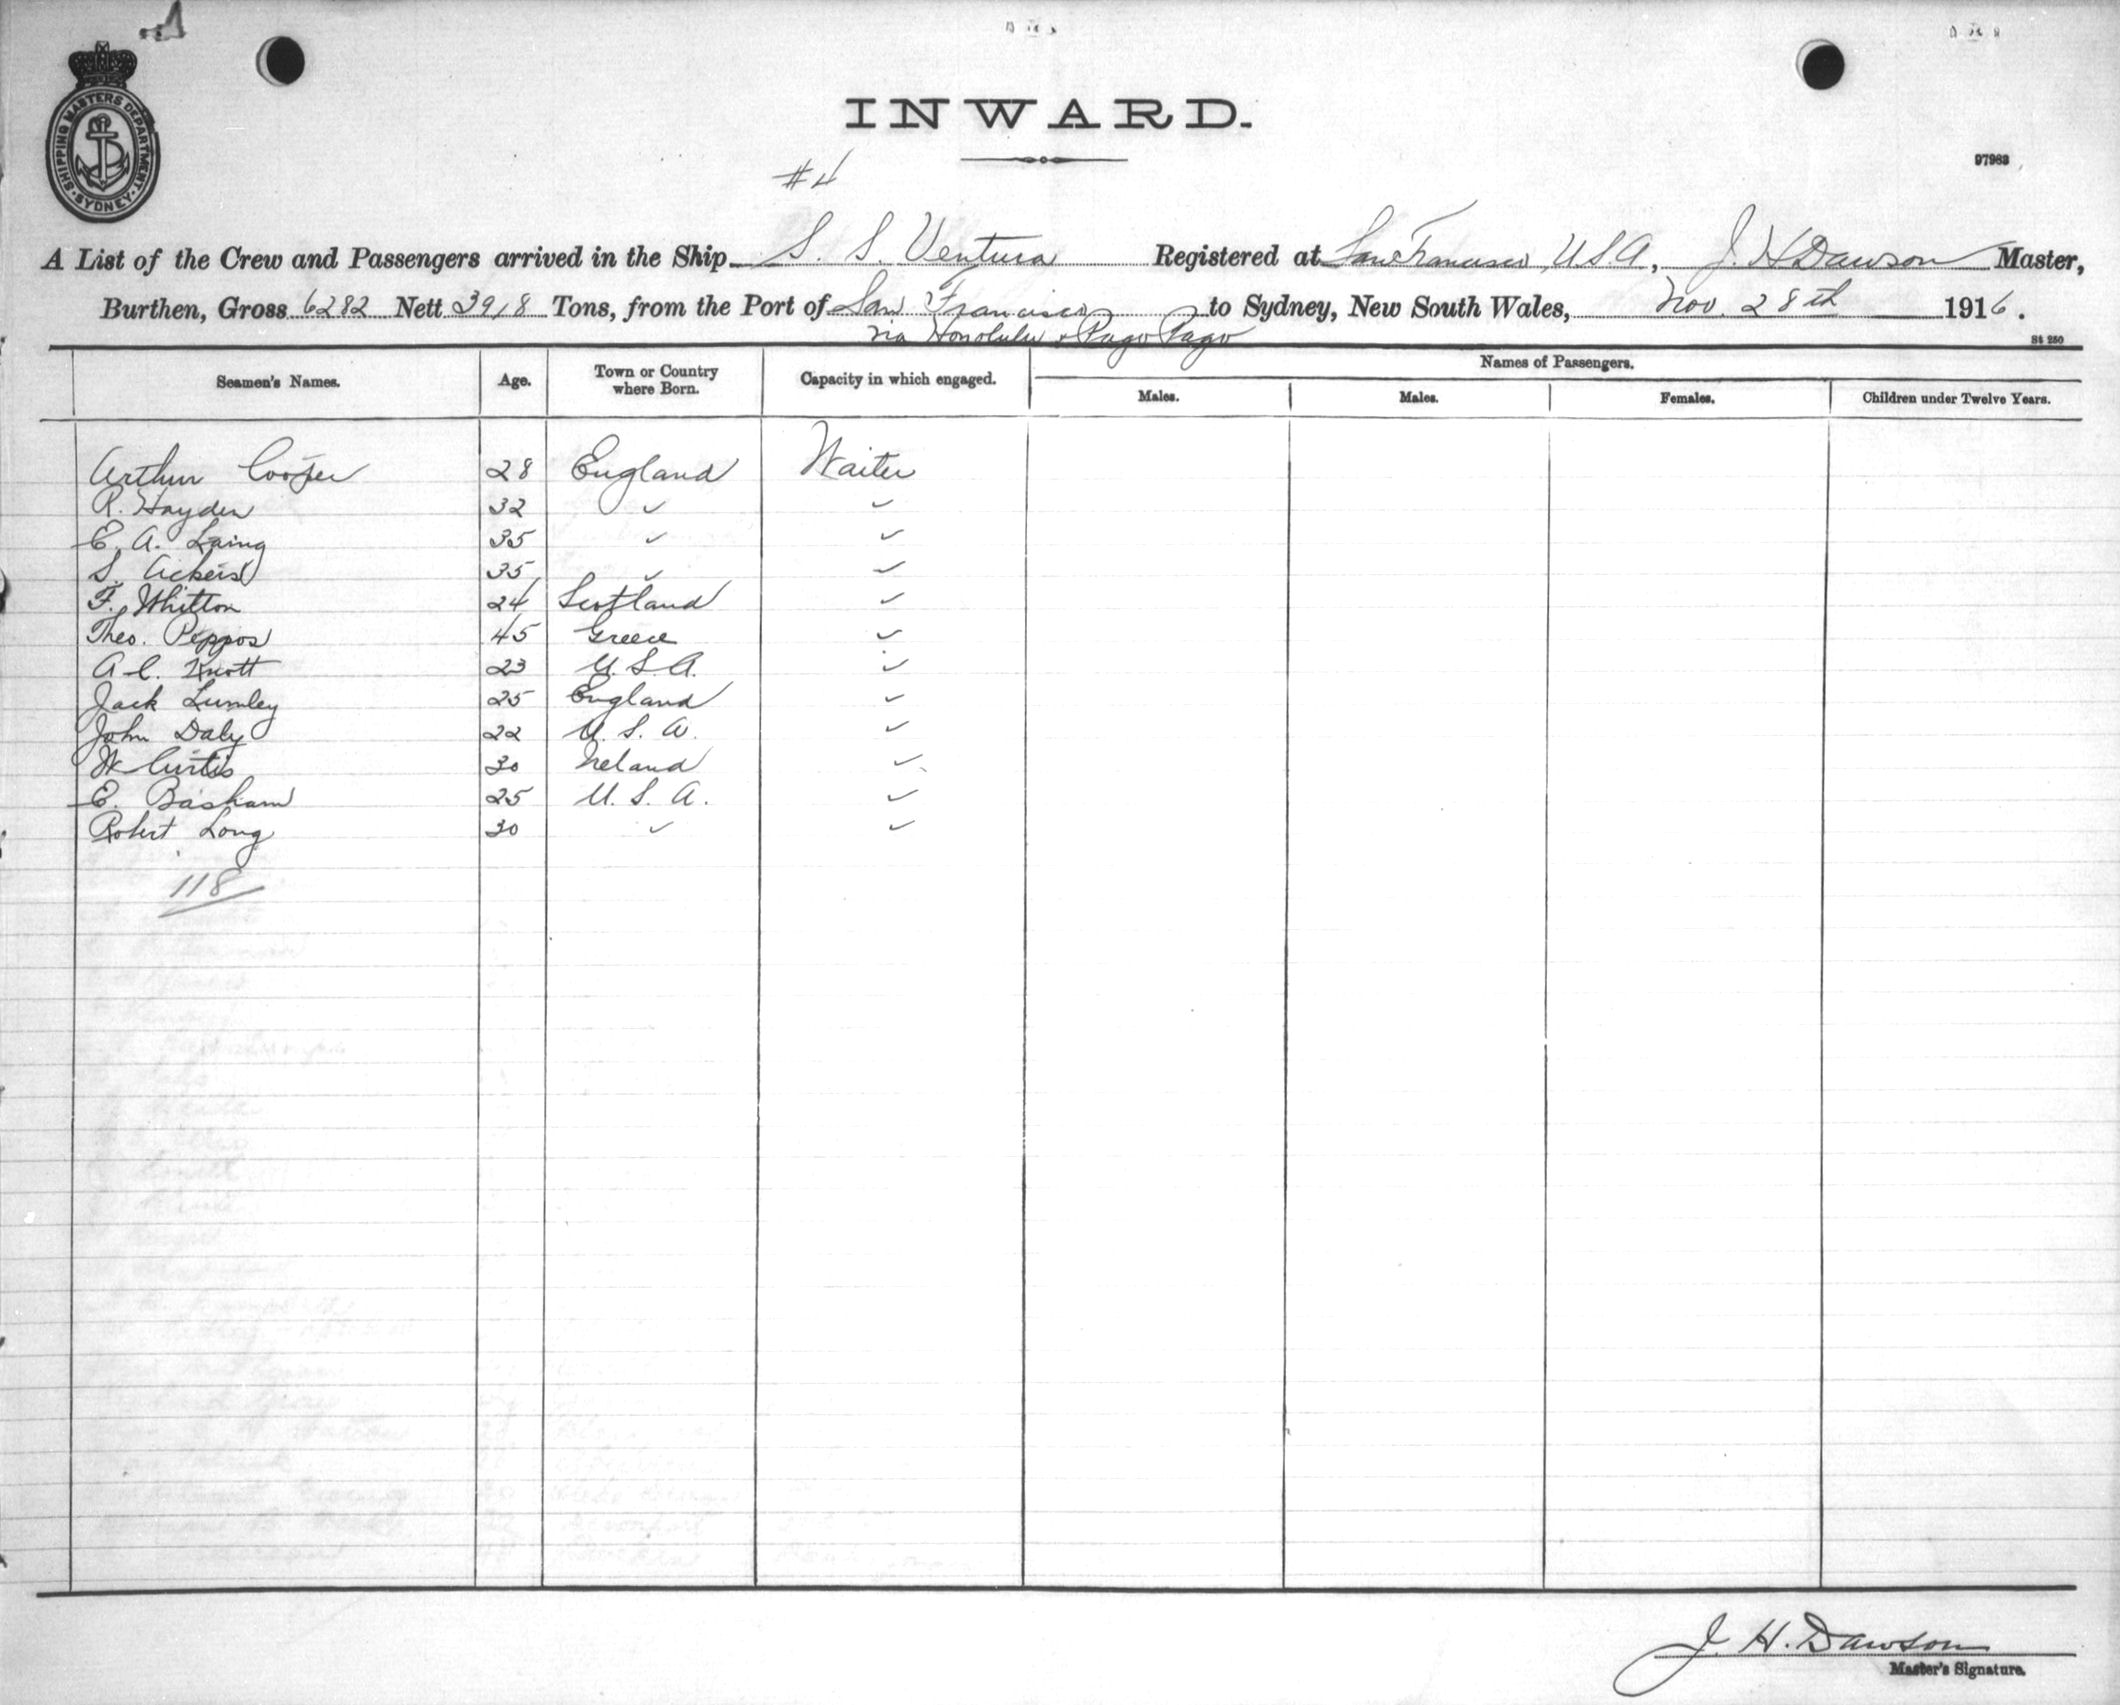 SHIPPING MASTERS DEPARTMENT
SYDNEY
INWARD.
97983
#4
A List of the Crew and Passengers arrived in the Ship S. S. Ventura Registered at San Francisco, U.S.A, J. H Dawson Master,
Burthen, Gross 6282 Nett 3918 Tons, from the Port of San Francisco to Sydney, New South Wales, Nov. 28th 1916.
via Honolulu & Pago Pago
S4 250
Seamen's Names. Age. Town or Country where Born. Capacity in which engaged. Names of Passengers.
Males. Males. Females. Children under Twelve Years.
Arthur Cooper 28 England Waiter
R. Hayden 32 ✓ ✓
E. A. Laing 35 ✓ ✓
S. Ackers 35 ✓ ✓
F. Whitton 24 Scotland ✓
Theo. Peppos 45 Greece ✓
A. C. Knott 23 U.S.A. ✓
Jack Lumley 25 England ✓
John Daly 22 U.S.A. ✓
W Curtis 30 Ireland ✓
E. Basham 25 U.S.A. ✓
Robert Long 30 ✓ ✓
118
J. H. Dawson
Master's Signature.